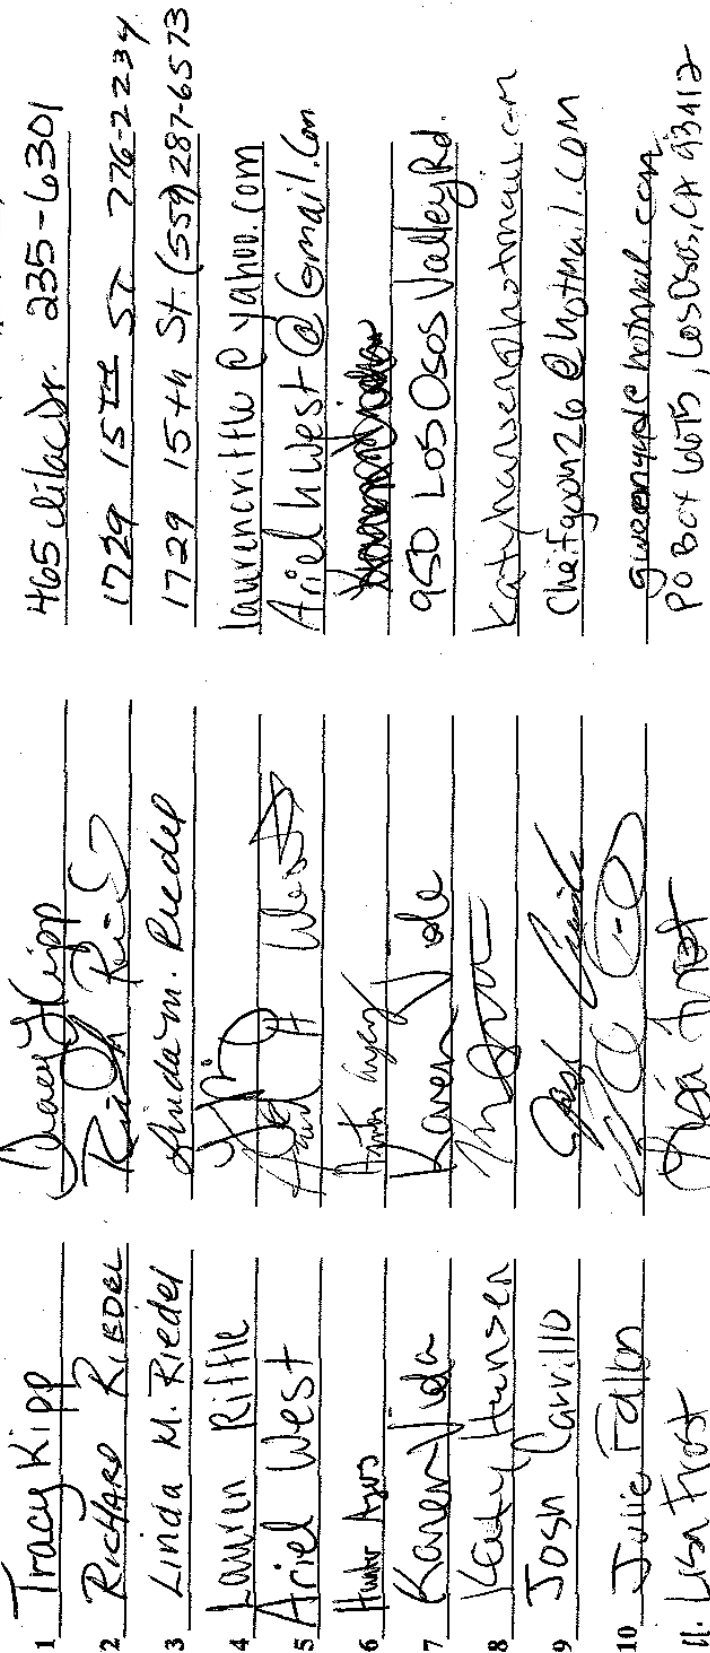 1 Tracy Kipp Tracy Kipp 465 Lilac Dr. 235-6301
2 RICHARD RIEDEL 1729 15TH ST 776-2234
3 Linda M. Riedel Linda M. Riedel 1729 15th St. (559) 287-6573
4 Lauren Riffle laurencriffle@yahoo.com
5 Ariel West Ariel H West ArielhWest@Gmail.com
6 Hunter
7 Karen Vida Karen 950 Los Osos Valley Rd.
8 Katy Hansen katyhansen@hotmail.com
9 Josh Carrillo Josh Chefgoon26@hotmail.com
10 Julie Fallon
11. Lisa Frost Lisa Frost PO BOX 6675, Los Osos, CA 93412